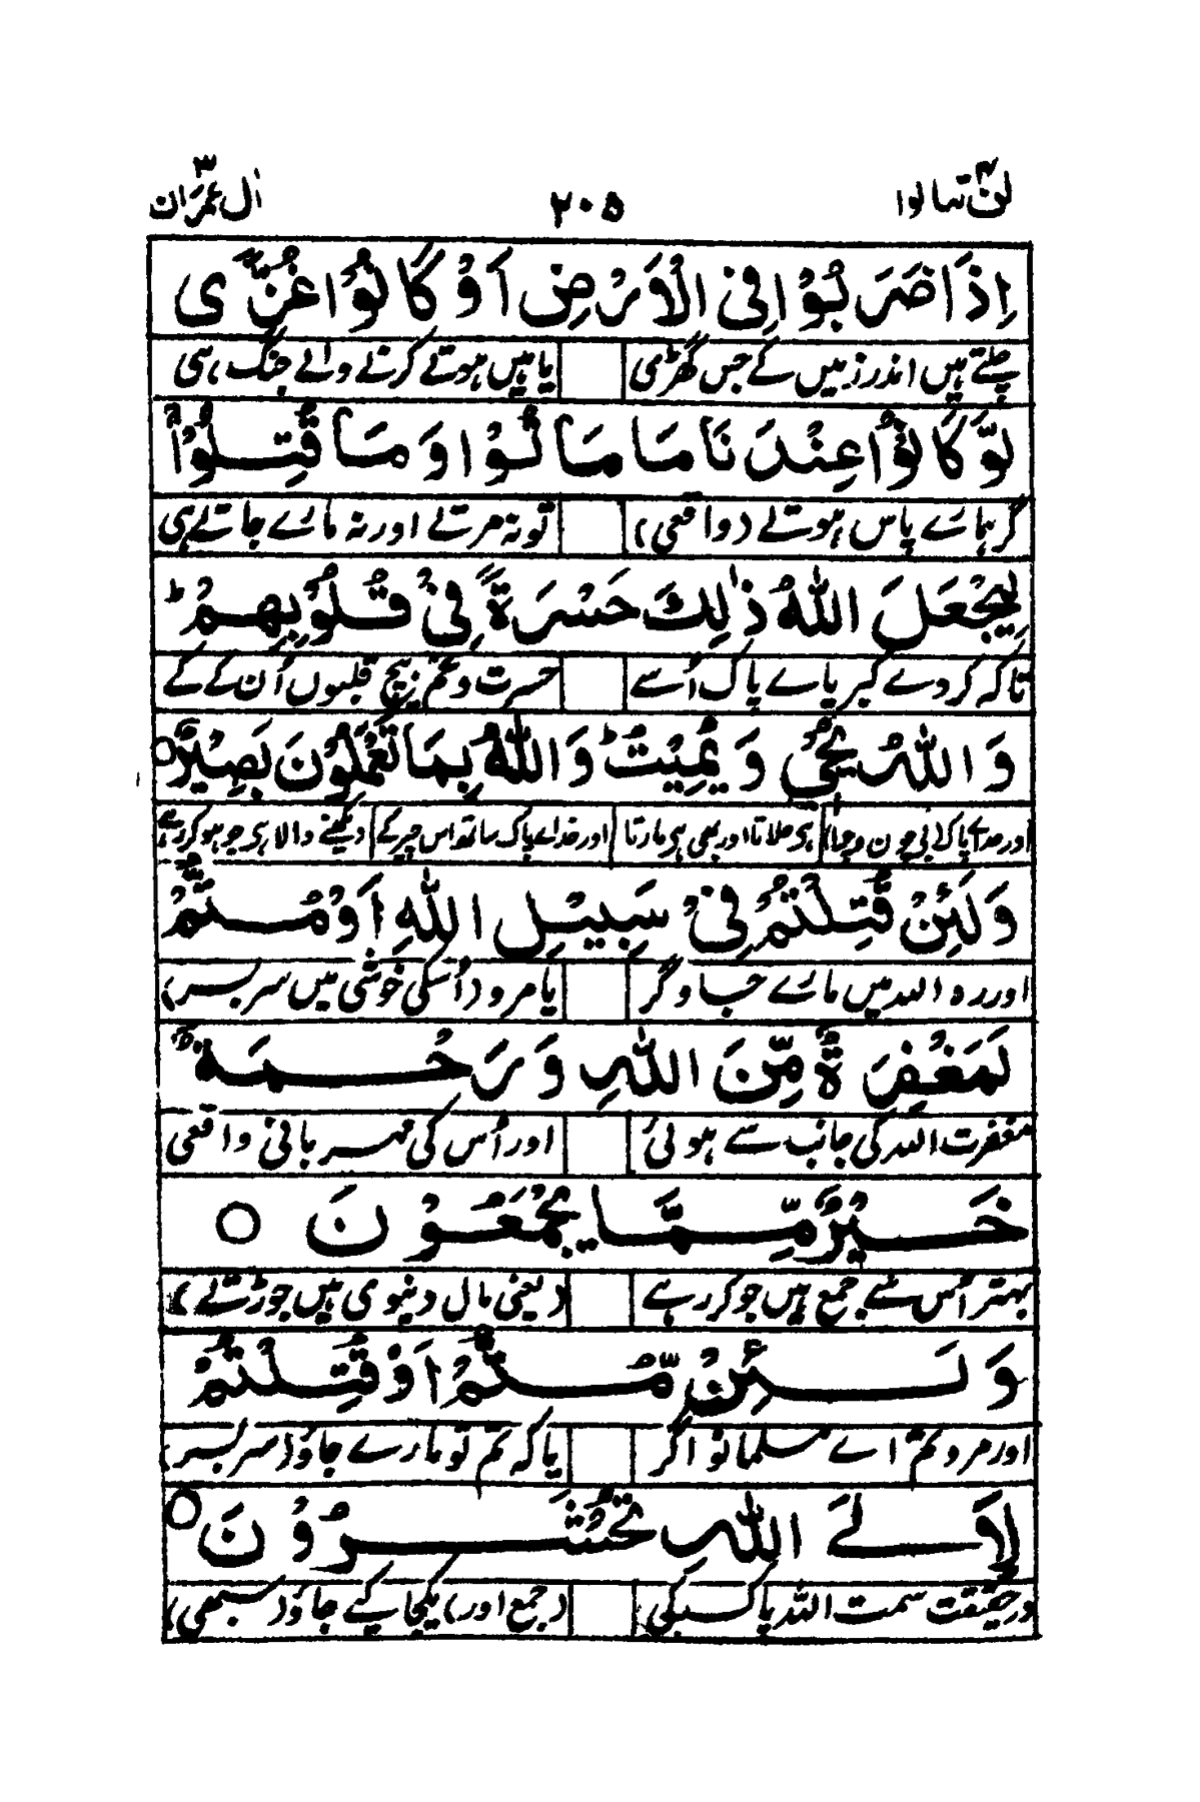 لن تنالوا ۴ ۲۰۵ اٰل عمرٰن ۳
اِذَا ضَرَبُوْا فِی الْاَرْضِ اَوْ كَانُوْا غُزًّی
چلتے ہیں اندر زمیں کے جس گھڑی یا ہیں ہوتے کرنے والے جنگ ہی
لَّوْ كَانُوْا عِنْدَنَا مَا مَاتُوْا وَمَا قُتِلُوْا ۚ
گر ہمارے پاس ہوتے (واقعی) تو نہ مرتے اور نہ مارے جاتے ہی
لِیَجْعَلَ اللّٰهُ ذٰلِكَ حَسْرَةً فِیْ قُلُوْبِهِمْ ؕ
تاکہ کر دے کبریا پاک اُسے حسرت و غم بیچ قلبوں اُن کے کے
وَ اللّٰهُ یُحْیٖ وَ یُمِیْتُ ؕ وَاللّٰهُ بِمَا تَعْمَلُوْنَ بَصِیْرٌ ○
اور خدائے پاک (بے چون و چرا) ہی جلاتا اور بھی ہی مارتا اور خدائے پاک ساتھ اس چیز کے دیکھنے والا ہی جو ہو کر رہے
وَ لَئِنْ قُتِلْتُمْ فِیْ سَبِیْلِ اللّٰهِ اَوْ مُتُّمْ
اور رہ اللہ میں مارے جاؤ گر یا مرو (اُسکی خوشی میں سربسر)
لَمَغْفِرَةٌ مِّنَ اللّٰهِ وَ رَحْمَةٌ
مغفرت اللہ کی جانب سے ہوئی اور اُس کی مہربانی واقعی
خَیْرٌ مِّمَّا یَجْمَعُوْنَ ○
بہتر اُس سے جمع ہیں جو کر رہے (یعنی مال دنیوی ہیں جوڑتے)
وَ لَئِنْ مُّتُّمْ اَوْ قُتِلْتُمْ
اور مرو تم اے مسلمانو اگر یا کہ تم تو مارے جاؤ (سربسر)
لَاِلَی اللّٰهِ تُحْشَرُوْنَ ○
در حقیقت سمت اللہ پاک کی (جمع اور) یکجا کیے جاؤ (سبھی)